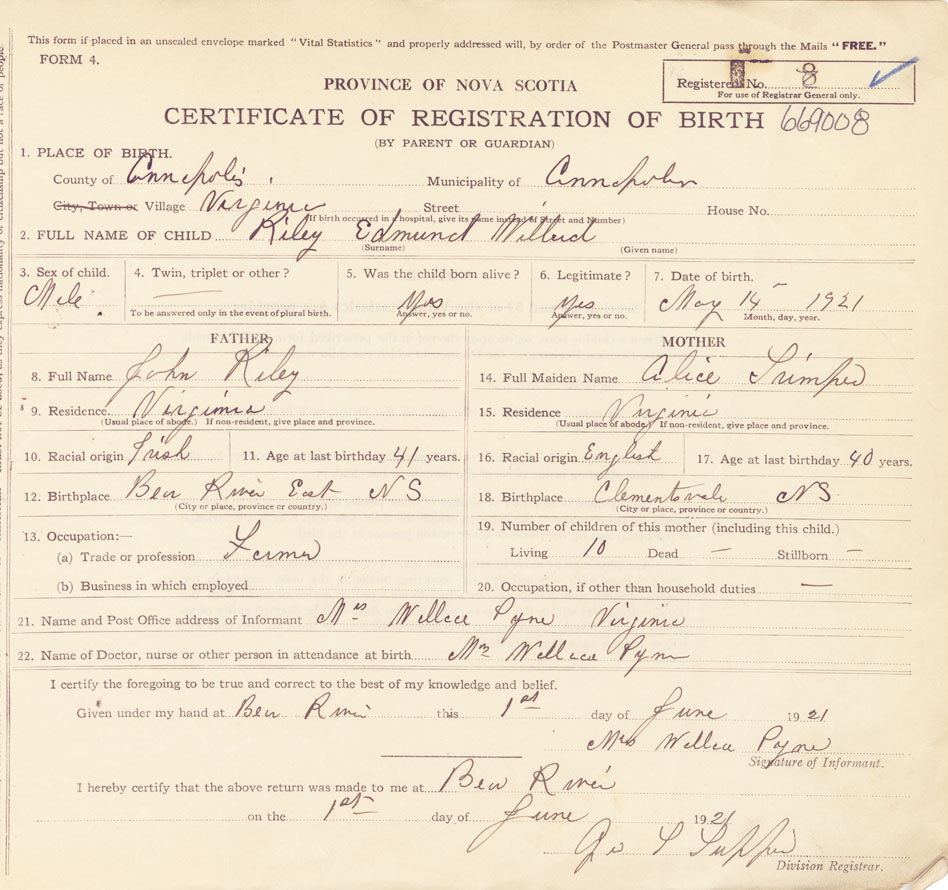 This form if placed in an unsealed envelope marked "Vital Statistics" and properly addressed will, by order of the Postmaster General pass through the Mails "FREE."
FORM 4.
Registered No. 8
For use of Registrar General only.
PROVINCE OF NOVA SCOTIA
CERTIFICATE OF REGISTRATION OF BIRTH 669008
(BY PARENT OR GUARDIAN)
1. PLACE OF BIRTH.
County of Annapolis Municipality of Annapolis
City, Town or Village Virginia Street House No.
(If birth occurred in a hospital, give its name instead of Street and Number)
2. FULL NAME OF CHILD Riley Edmund Willard
(Surname) (Given name)
3. Sex of child. 4. Twin, triplet or other? 5. Was the child born alive? 6. Legitimate? 7. Date of birth.
Male — Yes Yes May 14 1921
To be answered only in the event of plural birth. Answer, yes or no. Answer, yes or no. Month, day, year.
FATHER MOTHER
8. Full Name John Riley 14. Full Maiden Name Alice
9. Residence. Virginia 15. Residence Virginia
(Usual place of abode.) If non-resident, give place and province. (Usual place of abode.) If non-resident, give place and province.
10. Racial origin Irish 11. Age at last birthday 41 years. 16. Racial origin English 17. Age at last birthday 40 years.
12. Birthplace Bear River East N S 18. Birthplace Clementsvale N S
(City or place, province or country.) (City or place, province or country.)
13. Occupation:— 19. Number of children of this mother (including this child.)
(a) Trade or profession Farmer Living 10 Dead — Stillborn —
(b) Business in which employed 20. Occupation, if other than household duties —
21. Name and Post Office address of Informant Mrs Wallace Pyne Virginia
22. Name of Doctor, nurse or other person in attendance at birth Mrs Wallace Pyne
I certify the foregoing to be true and correct to the best of my knowledge and belief.
Given under my hand at Bear River this 1st day of June 1921
Mrs Wallace Pyne
Signature of Informant.
I hereby certify that the above return was made to me at Bear River
on the 1st day of June 1921
Geo
Division Registrar.